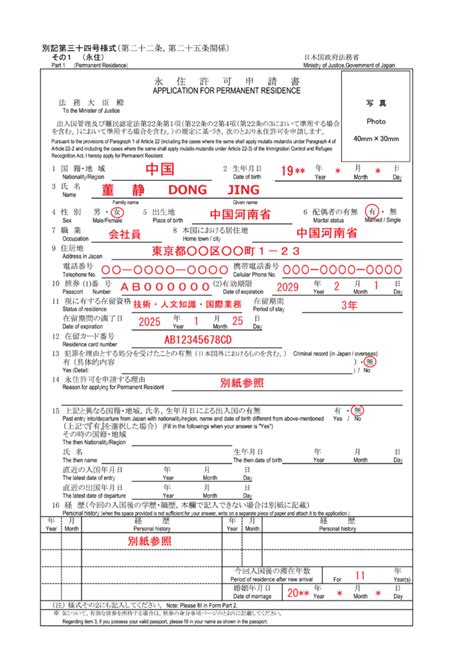 別記第三十四号様式(第二十二条, 第二十五条関係)
その1 (永住) 日本国政府法務省
Part 1 (Permanent Residence) Ministry of Justice,Government of Japan
永 住 許 可 申 請 書
APPLICATION FOR PERMANENT RESIDENCE
法 務 大 臣 殿
To the Minister of Justice
写 真
Photo
40mm×30mm
出入国管理及び難民認定法第22条第1項(第22条の2第4項(第22条の3において準用する場合
を含む。)において準用する場合を含む。)の規定に基づき, 次のとおり永住許可を申請します。
Pursuant to the provisions of Paragraph 1 of Article 22 (including the cases where the same shall apply mutatis mutandis under Paragraph 4 of
Article 22-2 and including the cases where the same shall apply mutatis mutandis under Article 22-3) of the Immigration Control and Refugee
Recognition Act, I hereby apply for Permanent Residence.
1 国 籍・地 域 中国 2 生年月日 19** 年 * 月 * 日
Nationality/Region Date of birth Year Month Day
3 氏 名 董 静 DONG JING
Name Family name Given name
4 性 別 男・女 5 出生地 中国河南省 6 配偶者の有無 有・無
Sex Male/Female Place of birth Marital status Married / Single
7 職 業 会社員 8 本国における居住地 中国河南省
Occupation Home town / city
9 住居地 東京都〇〇区〇〇町1-23
Address in Japan
電話番号 〇〇-〇〇〇〇-〇〇〇〇 携帯電話番号 〇〇〇-〇〇〇〇-〇〇〇〇
Telephone No. Cellular phone No.
10 旅券 (1)番 号 AB0000000 (2)有効期限 2029 年 2 月 1 日
Passport Number Date of expiration Year Month Day
11 現に有する在留資格 技術・人文知識・国際業務 在留期間 3年
Status of residence Period of stay
在留期間の満了日 2025 年 1 月 25 日
Date of expiration Year Month Day
12 在留カード番号 AB12345678CD
Residence card number
13 犯罪を理由とする処分を受けたことの有無 (日本国外におけるものを含む。) Criminal record (in Japan / overseas)
有 (具体的内容 )・無
Yes (Detail: ) / No
14 永住許可を申請する理由 別紙参照
Reason for applying for Permanent Resident
15 上記と異なる国籍・地域, 氏名, 生年月日による出入国の有無 有・無
Past entry into/departure from Japan with nationality/region, name and date of birth different from above-mentioned Yes / No
(上記で『有』を選択した場合) (Fill in the followings when your answer is "Yes")
その時の国籍・地域
The then Nationality/Region
氏 名 生年月日 年 月 日
The then name The then date of birth Year Month Day
直近の入国年月日 年 月 日
The latest date of entry Year Month Day
直近の出国年月日 年 月 日
The latest date of departure Year Month Day
16 経 歴 (今回の入国後の学歴・職歴, 本欄で記入できない場合は別紙に記載)
Personal history (when the space provided is not sufficient for your answer, write on a separate piece of paper and attach it to the application.)
年 月 経 歴 年 月 経 歴
Year Month Personal history Year Month Personal history
別紙参照
今回入国後の滞在年数 11 年
Period of residence after new arrival For Year(s)
婚姻年月日 20** 年 * 月 * 日
Date of marriage Year Month Day
(注) 様式その2にも記入してください。 Note: Please fill in Form Part 2.
Regarding item 3, if you possess your valid passport, please fill in your name as shown in the passport.